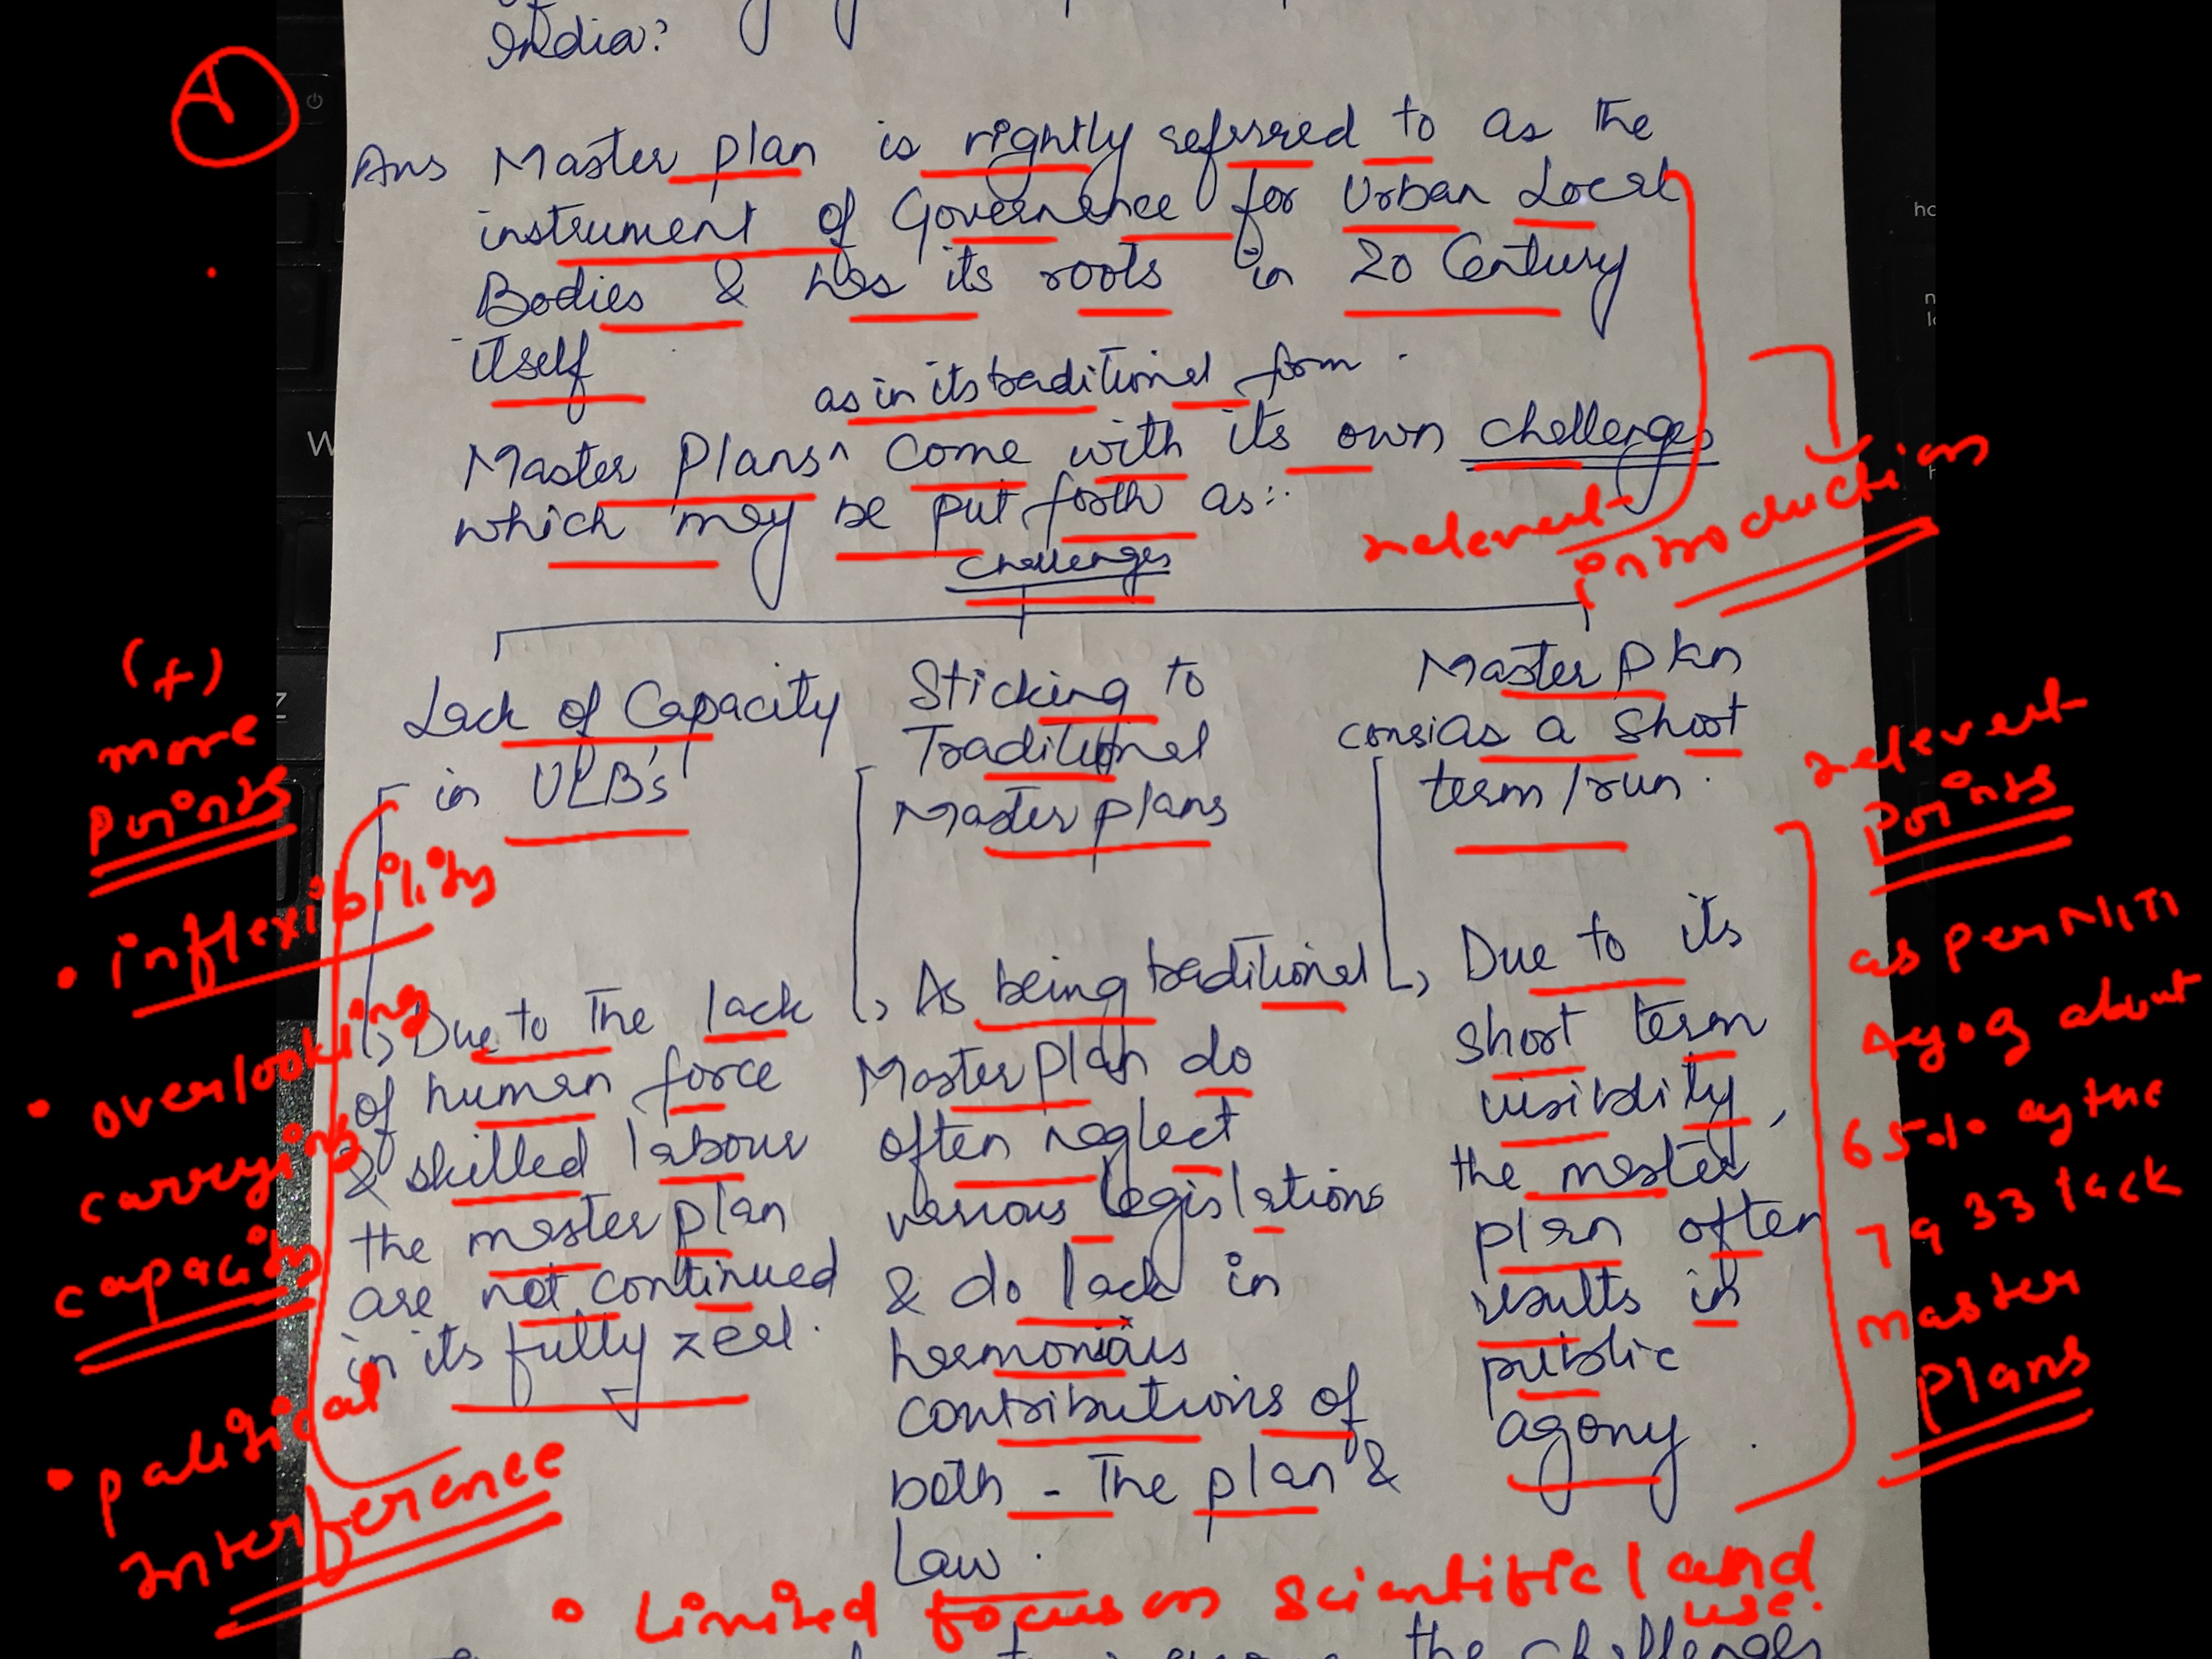 India?
Ans Master plan is rightly referred to as the
instrument of Governence for Urban Local
Bodies & has its roots in 20 Century
itself
as in its traditional form.
Master Plans^ come with its own challenges
which may be put forth as:-
relevent
introduction
challenges
Lack of Capacity
in ULB's
Due to the lack
of human force
& skilled labour
the master plan
are not continued
in its fully zeal.
Sticking to
Traditional
Master plans
As being traditional
Master plan do
often neglect
various legislations
& do lack in
harmonious
contributions of
both - The plan &
Law.
Master plan
as a short
term/run.
Due to its
short term
visiblity,
the master
plan often
results in
public
agony.
(+)
more
points
• inflexibility
• overlooking
carrying
capacity
• political
Interference
relevent
points
as per NITI
Ayog about
65% of the
7933 lack
master
plans
• Limited focus on scientific land
use.
the challenges